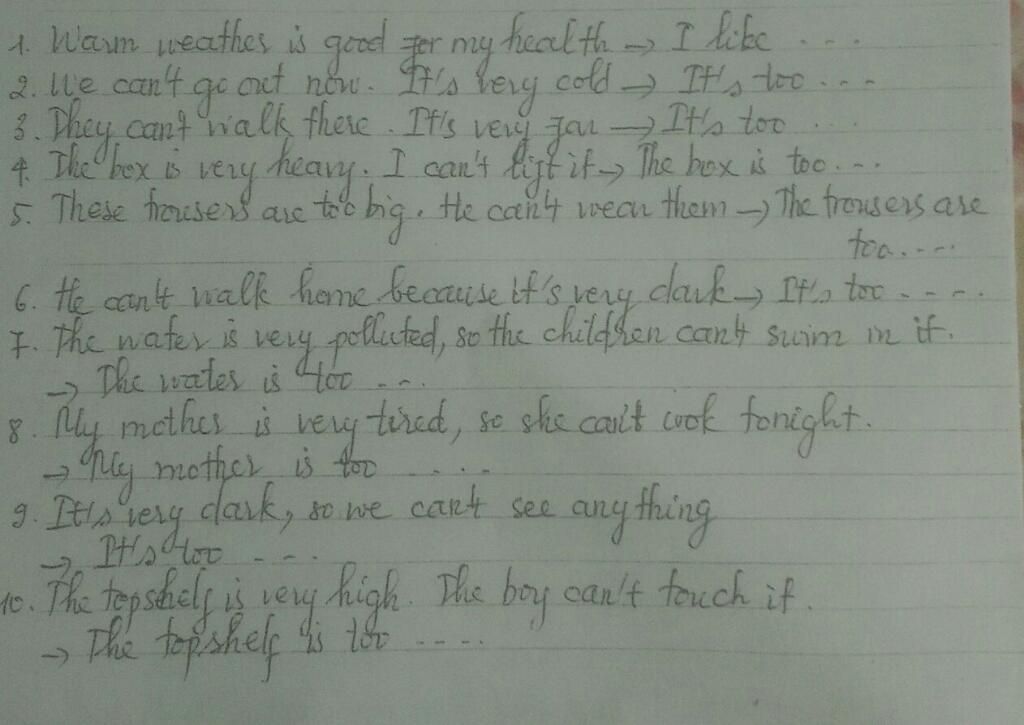 1. Warm weather is good for my health → I like ...
2. We can't go out now. It's very cold → It's too ...
3. They can't walk there. It's very far → It's too ...
4. The box is very heavy. I can't lift it → The box is too...
5. These trousers are too big. He can't wear them → The trousers are
too....
6. He can't walk home because it's very dark → It's too ....
7. The water is very polluted, so the children can't swim in it.
→ The water is too ...
8. My mother is very tired, so she can't cook tonight.
→ My mother is too ....
9. It's very dark, so we can't see anything
→ It's too ....
10. The topshelf is very high. The boy can't touch it.
→ The topshelf is too ....